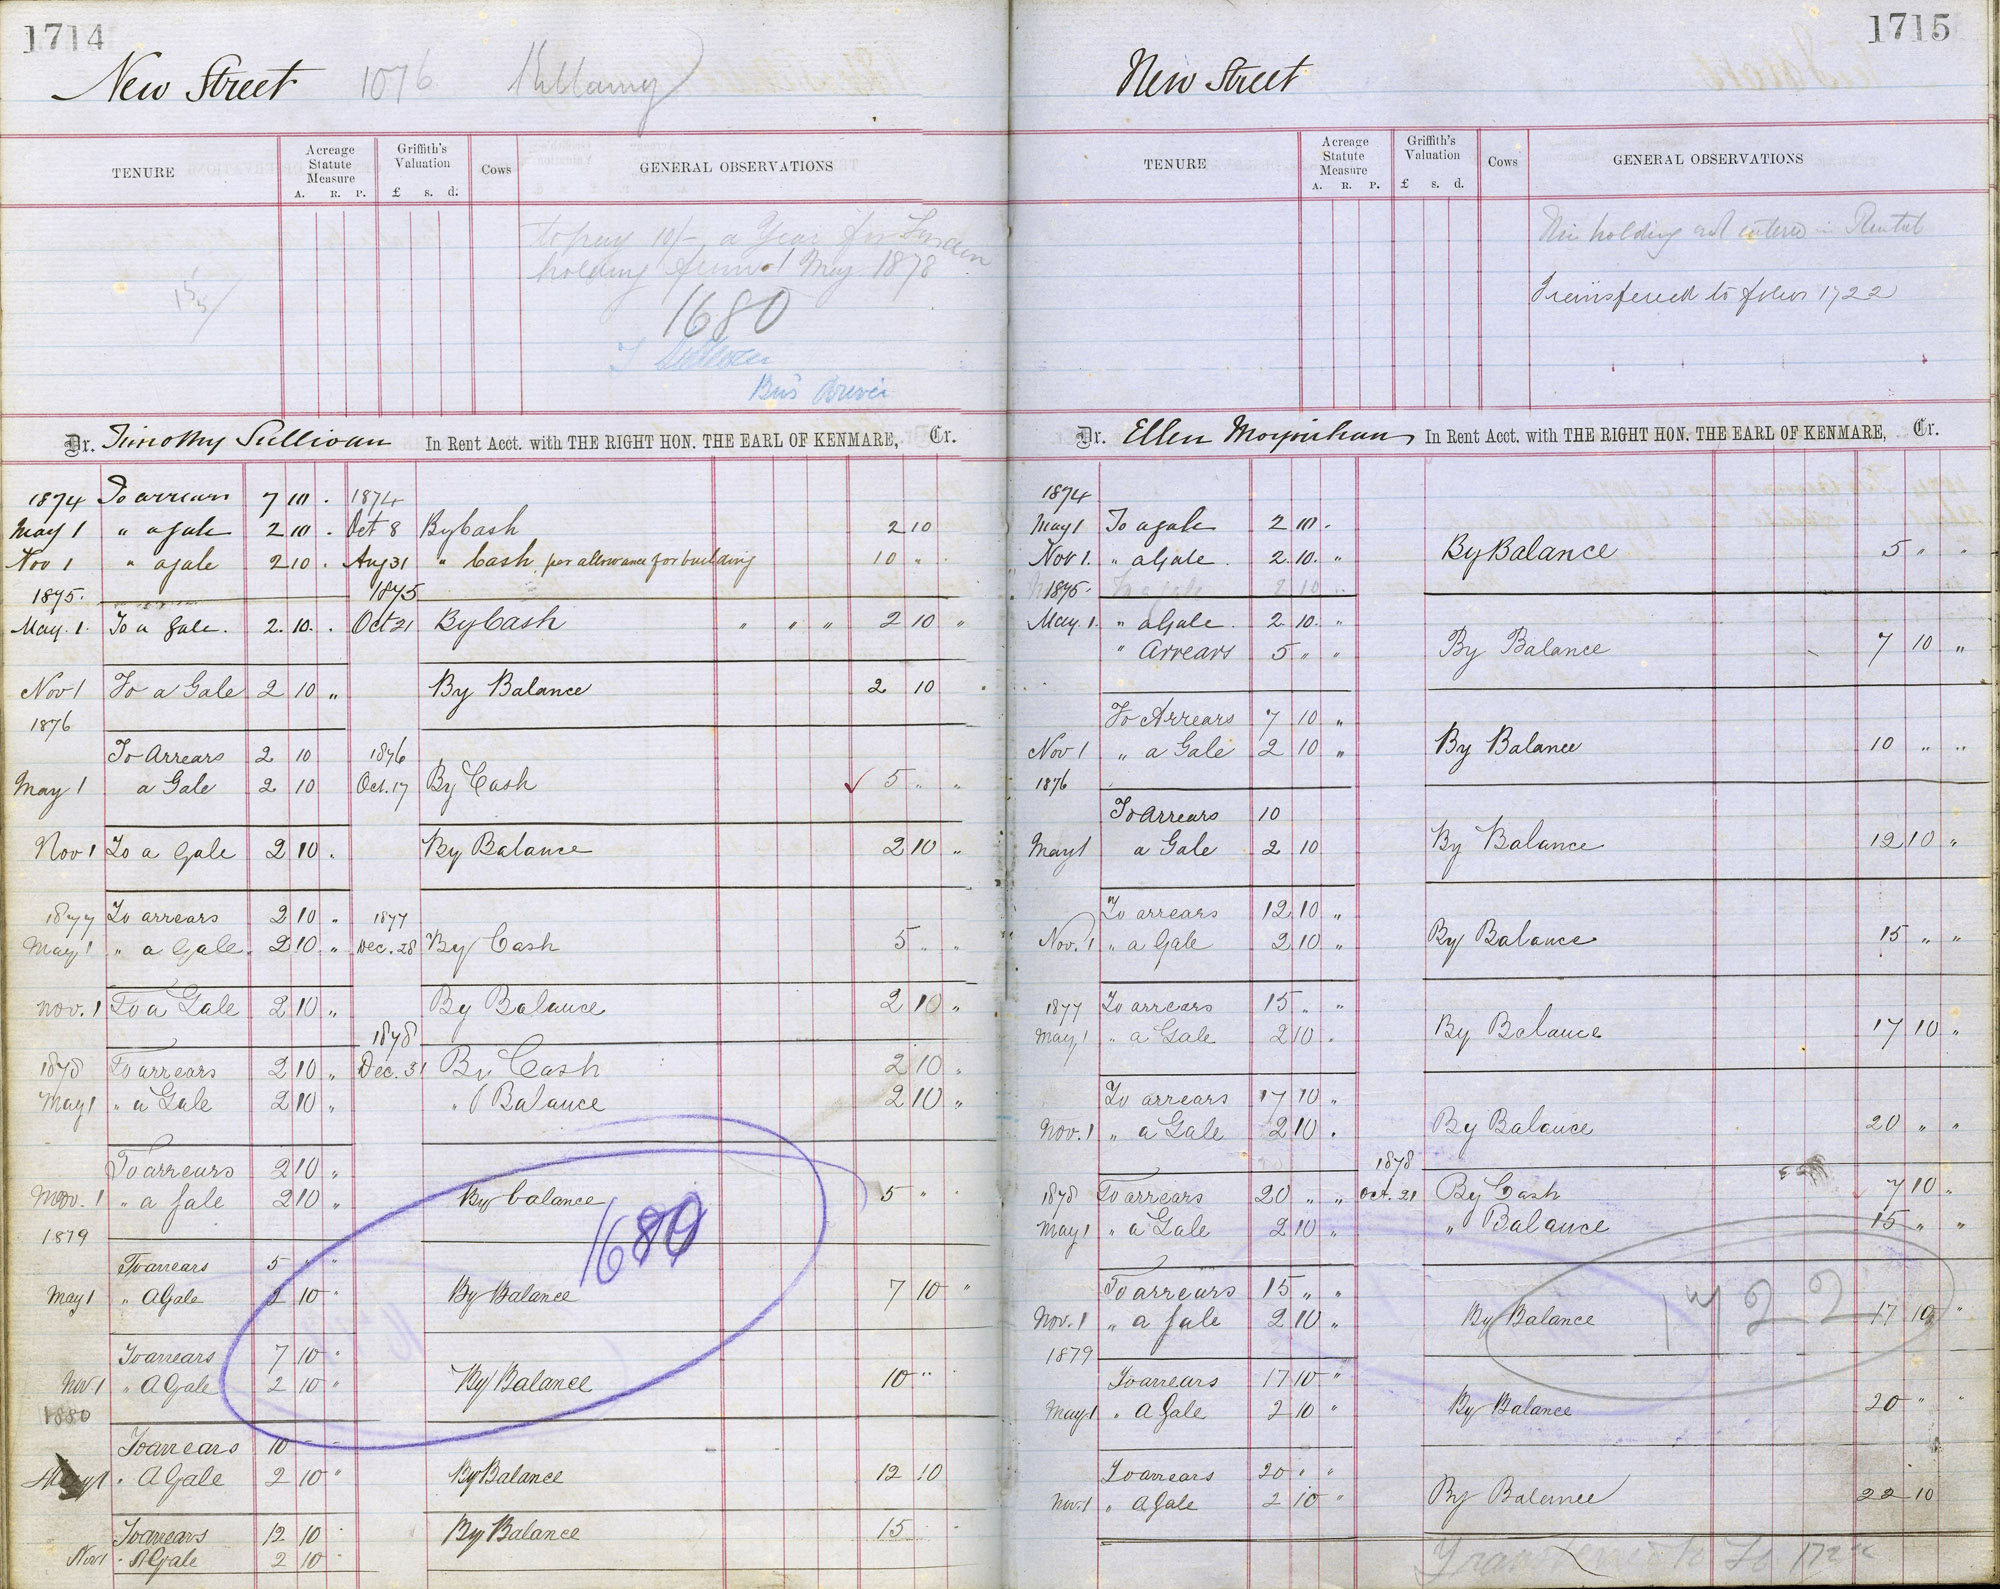 1714
New Street 1076 Killarney
TENURE
Acreage Statute Measure
A. R. P.
Griffith's Valuation
£ s. d.
Cows
GENERAL OBSERVATIONS
To pay 10/- a Year for
holding from 1 May 1878
1680
Dr. Timothy Sullivan In Rent Acct. with THE RIGHT HON. THE EARL OF KENMARE, Cr.
1874 To arrears 7 10 . 1874
May 1 " a gale 2 10 . Oct 8 By Cash 2 10
Nov 1 " a gale 2 10 . Aug 31 " Cash per allowance for building 10 "
1875. 1875
May. 1. To a gale. 2. 10. . Oct 21 By Cash " " " 2 10 "
Nov 1 To a Gale 2 10 " By Balance 2 10
1876
To Arrears 2 10 1876
May 1 a Gale 2 10 Oct. 17 By Cash ✓ 5 " "
Nov 1 To a Gale 2 10 . By Balance 2 10 "
1877 To arrears 2 10 " 1877
May 1 " a Gale. 2 10 " Dec. 28 By Cash 5 " "
Nov. 1 To a Gale 2 10 " By Balance 2 10 "
1878
1878 To arrears 2 10 " Dec. 31 By Cash 2 10 "
May 1 " a Gale 2 10 " " Balance 2 10 "
To arrears 2 10 "
Nov. 1 " a gale 2 10 " By balance 5 " "
1680
1879
To arrears 5 " "
May 1 " A Gale 2 10 " By Balance 7 10 "
To arrears 7 10 "
Nov 1 " A Gale 2 10 " By Balance 10 " "
1880
To arrears 10 - -
May 1 " A Gale 2 10 " By Balance 12 10
To arrears 12 10 . By Balance 15 . .
Nov 1 " A Gale 2 10 .
1715
New Street
TENURE
Acreage Statute Measure
A. R. P.
Griffith's Valuation
£ s. d.
Cows
GENERAL OBSERVATIONS
holding not entered in Rental
Transferred to folio 1722
Dr. Ellen Moynihan In Rent Acct. with THE RIGHT HON. THE EARL OF KENMARE, Cr.
1874
May 1 To a gale 2 10 .
Nov 1. " a Gale . 2. 10. " By Balance 5 " "
1875.
May. 1. " a Gale. 2. 10. "
" Arrears 5 " " By Balance 7 10 "
To Arrears 7 10 "
Nov 1 " a Gale 2 10 " By Balance 10 " "
1876
To arrears 10
May 1 a Gale 2 10 By Balance 12 10 "
To arrears 12 10 "
Nov. 1 " a Gale 2 10 " By Balance 15 " "
1877 To arrears 15 " "
May 1 " a Gale 2 10 . By Balance 17 10 "
To arrears 17 10 "
Nov. 1 " a Gale 2 10 . By Balance 20 " "
1878
1878 To arrears 20 " " Oct. 21 By Cash 7 10 "
May 1 " a Gale 2 10 " " Balance 15 " "
To arrears 15 " "
Nov. 1 " a gale 2 10 " By Balance 17 10 "
1722
1879
To arrears 17 10 "
May 1 " A Gale 2 10 " By Balance 20 " "
To arrears 20 " "
Nov. 1 " A Gale 2 10 " By Balance 22 10
Transferred to Fo 1722